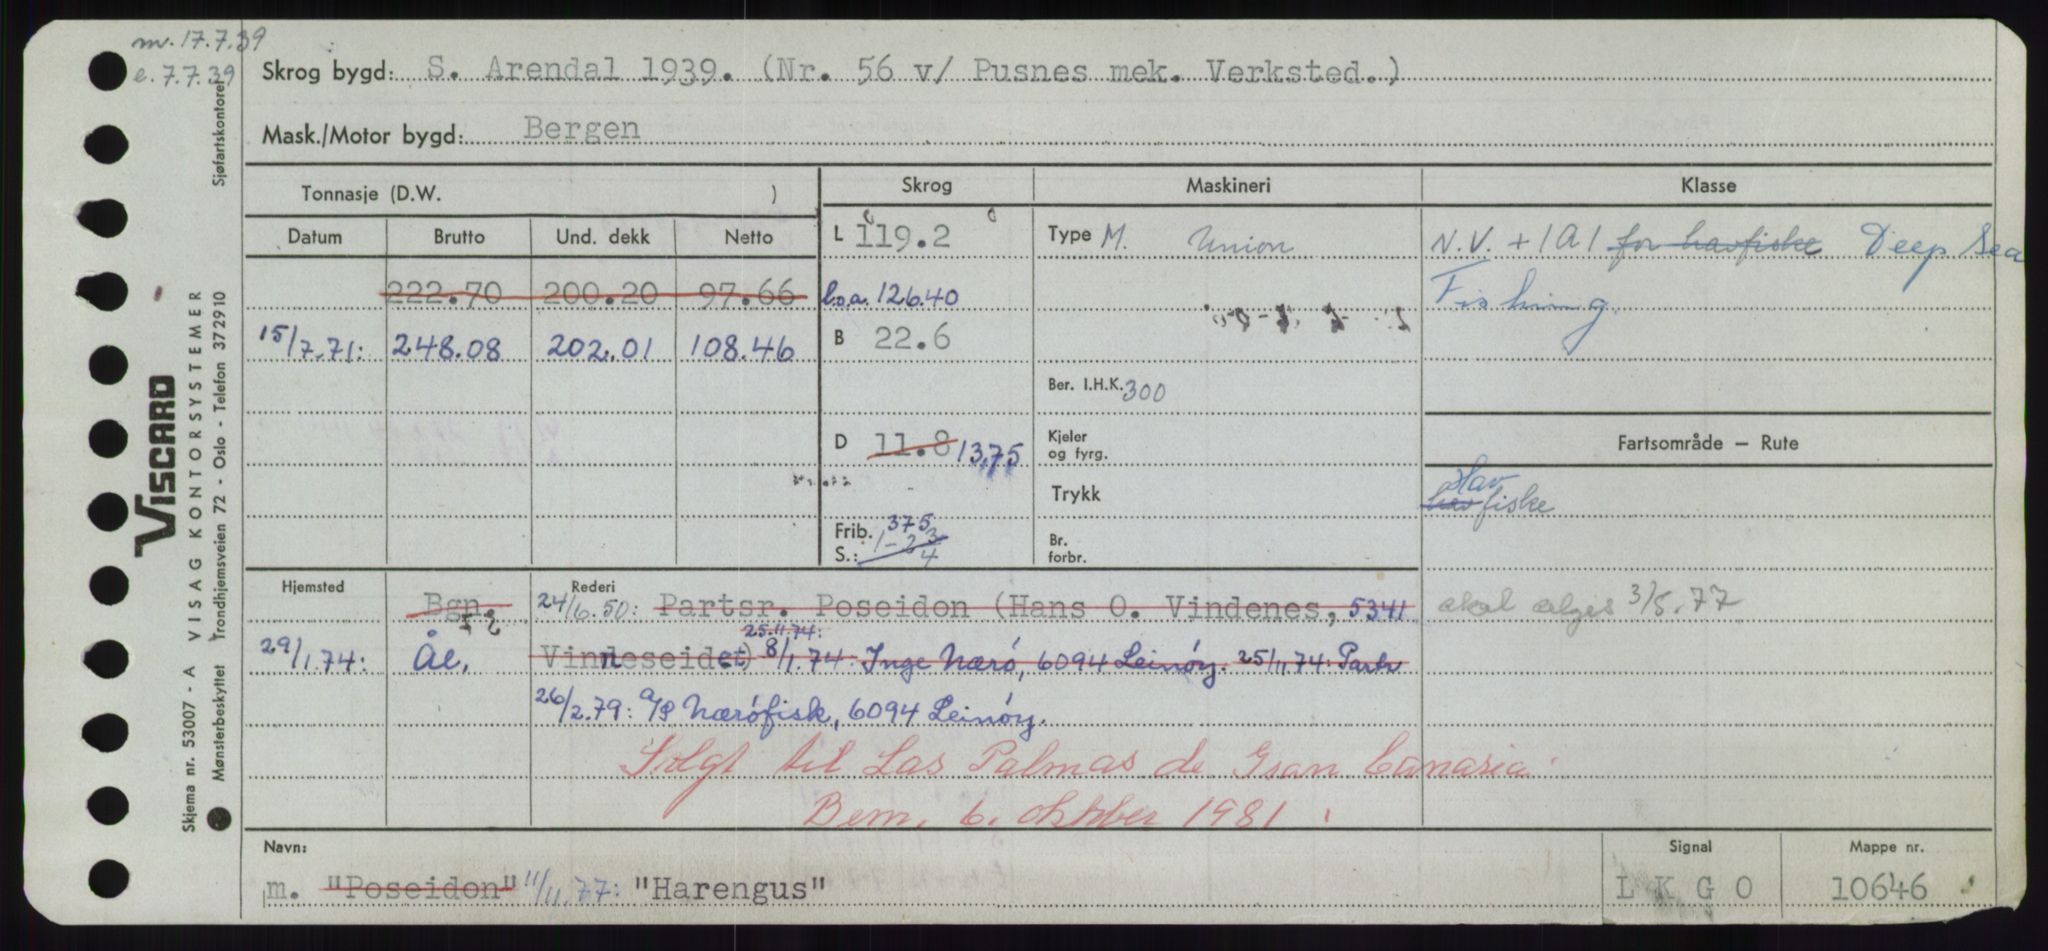 m. 17.7.39
e. 7.7.39
Skrog bygd: S. Arendal 1939. (Nr. 56 v/ Pusnes mek. Verksted.)
Mask./Motor bygd: Bergen
Tonnasje (D.W. )
Skrog
Maskineri
Klasse
Datum Brutto Und. dekk Netto
L 119.2
Type M. Union
N.V. + 1A1 for havfiske Deep Sea
222.70 200.20 97.66
l.o.a. 126.40
Fishing
15/7.71: 248.08 202.01 108.46
B 22.6
Ber. I.H.K. 300
D 11.8 13,75
Kjeler og fyrg.
Fartsområde — Rute
Trykk
Hav
fiske
Frib. 375
S.: 1-2 3/4
Br. forbr.
Hjemsted
Bgn.
Rederi
24/6.50: Partsr. Poseidon (Hans O. Vindenes, 5341
skal selges 3/5.77
25.11.74:
29/1.74: Ål, Vinneseidet) 8/1.74: Inge Nærö, 6094 Leinöy. 25/11 74: Partr
26/2.79: A/S Næröfisk, 6094 Leinöy.
Solgt til Las Palmas de Gran Canaria
Bem. 6. oktober 1981.
Navn:
m. "Poseidon" 11/11.77: "Harengus"
Signal
L K G O
Mappe nr.
10646
VISCARD
VISAG KONTORSYSTEMER
Skjema nr. 53007 - A
Mønsterbeskyttet Trondhjemsveien 72 - Oslo - Telefon 372910
Sjøfartskontoret